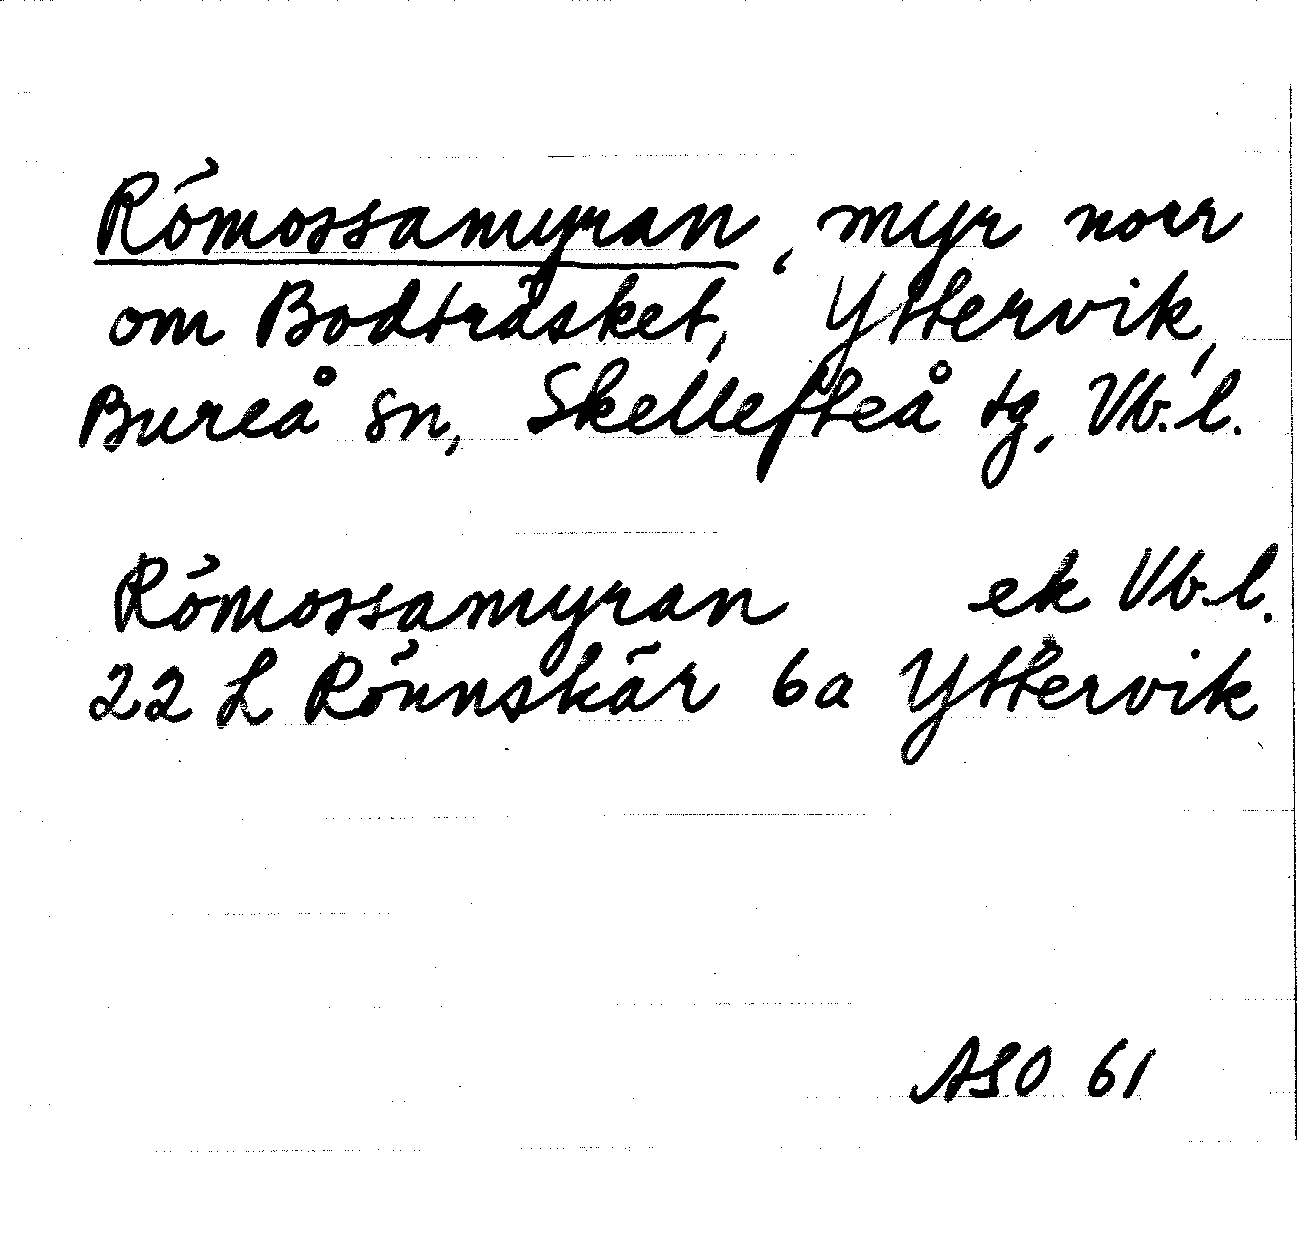 Römossamyran, myr norr
om Bodträsket, Yttervik,
Bureå sn, Skellefteå tg, Vb. l.
Römossamyran ek Vb. l.
22 L Rönnskär 6a Yttervik
ASO 61